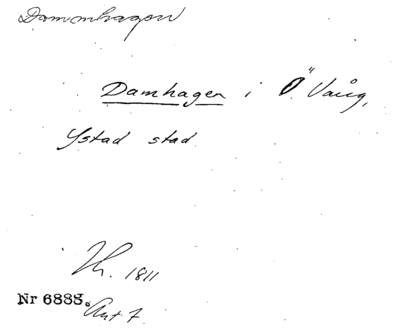 Dammhagen
Damhagen i Ö. Vång,
Ystad stad
Th. 1811
Nr 6888.
Ant 7